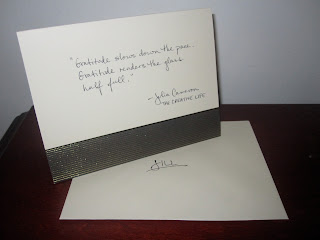 "Gratitude slows down the pace.
Gratitude renders the glass
half full."
—Julia Cameron
THE CREATIVE LIFE
Jill